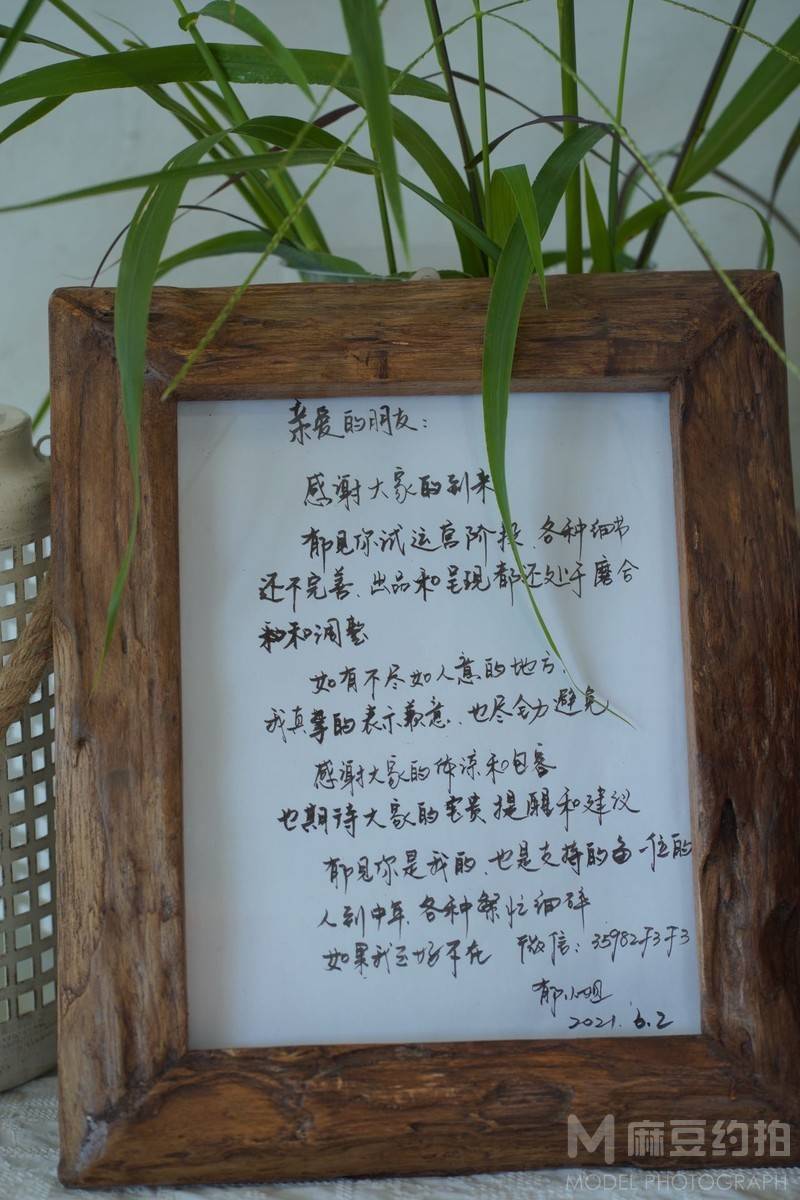 亲爱的朋友：
感谢大家的到来
郁见你试运营阶段、各种细节
还不完善、出品和呈现都还处于磨合
和调整
如有不尽如人意的地方、
我真挚的表示歉意、也尽全力避免
感谢大家的体谅和包容
也期待大家的宝贵提醒和建议
郁见你是我的、也是支持的每一位的
人到中年、各种繁忙细碎
如果我不在 微信：
郁小姐
2021.6.2
M 麻豆约拍
MODEL PHOTOGRAPH